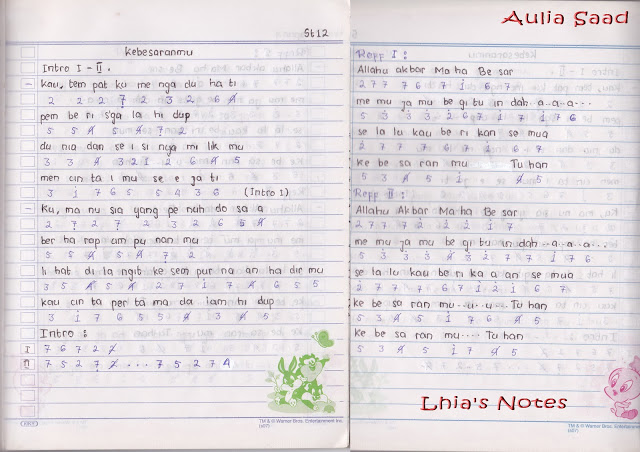 St 12
Kebesaranmu
Intro I - II.
Kau, tem pat ku me nga du ha ti
2 2 2 7 2 3 2 6 4
pem be ri s'ga la hi dup
5 5 4 5 4 7 2
du nia dan se i si nya mi lik mu
3 3 4 3 2 1 2 6 4 5
men cin ta i mu se e ja ti
3 1 7 6 5 5 4 3 6 (Intro 1)
Ku, ma nu sia yang pe nuh do sa a
2 7 2 7 2 3 2 6 5 4
ber ha rap am pu nan mu
5 5 4 5 4 7 2
li hat di la ngit ke sem pur na an ha dir mu
3 5 4 5 4 2 7 1 7 4 6 5 5
kau cin ta per ta ma da lam hi dup
3 1 7 6 5 5 4 3 4 5
Intro :
I 7 6 7 2 7
II 7 5 2 7 7 . . . 7 5 2 7 4
TM & © Warner Bros. Entertainment Inc.
(s07)
Aulia Saad
Reff I :
Allahu akbar Ma ha Be sar
2 7 7 7 6 7 1 6 7
me mu ja mu be gi tu in dah -a..a..a...
5 3 3 3 2 6 7 1 7 1 7 6
se la lu kau be ri kan se mua
2 7 7 7 6 7 1 6 7
ke be sa ran mu Tu han
5 3 4 5 1 4 5
Reff II :
Allahu Akbar Ma ha Be sar
2 7 7 7 2 2 2 1 7
me mu ja mu be gi tu in dah ..a..a..a...
5 3 3 3 4 3 2 7 7 1 7 6
se la lu kau be ri ka a an se mua
2 7 7 7 6 7 1 2 1 6 7
ke be sa ran mu..u..u... Tu han
5 3 4 5 1 7 6 4 5
ke be sa ran mu... Tu han
5 3 4 5 1 7 4 5
Lhia's Notes
TM & © Warner Bros. Entertainment Inc.
(s07)